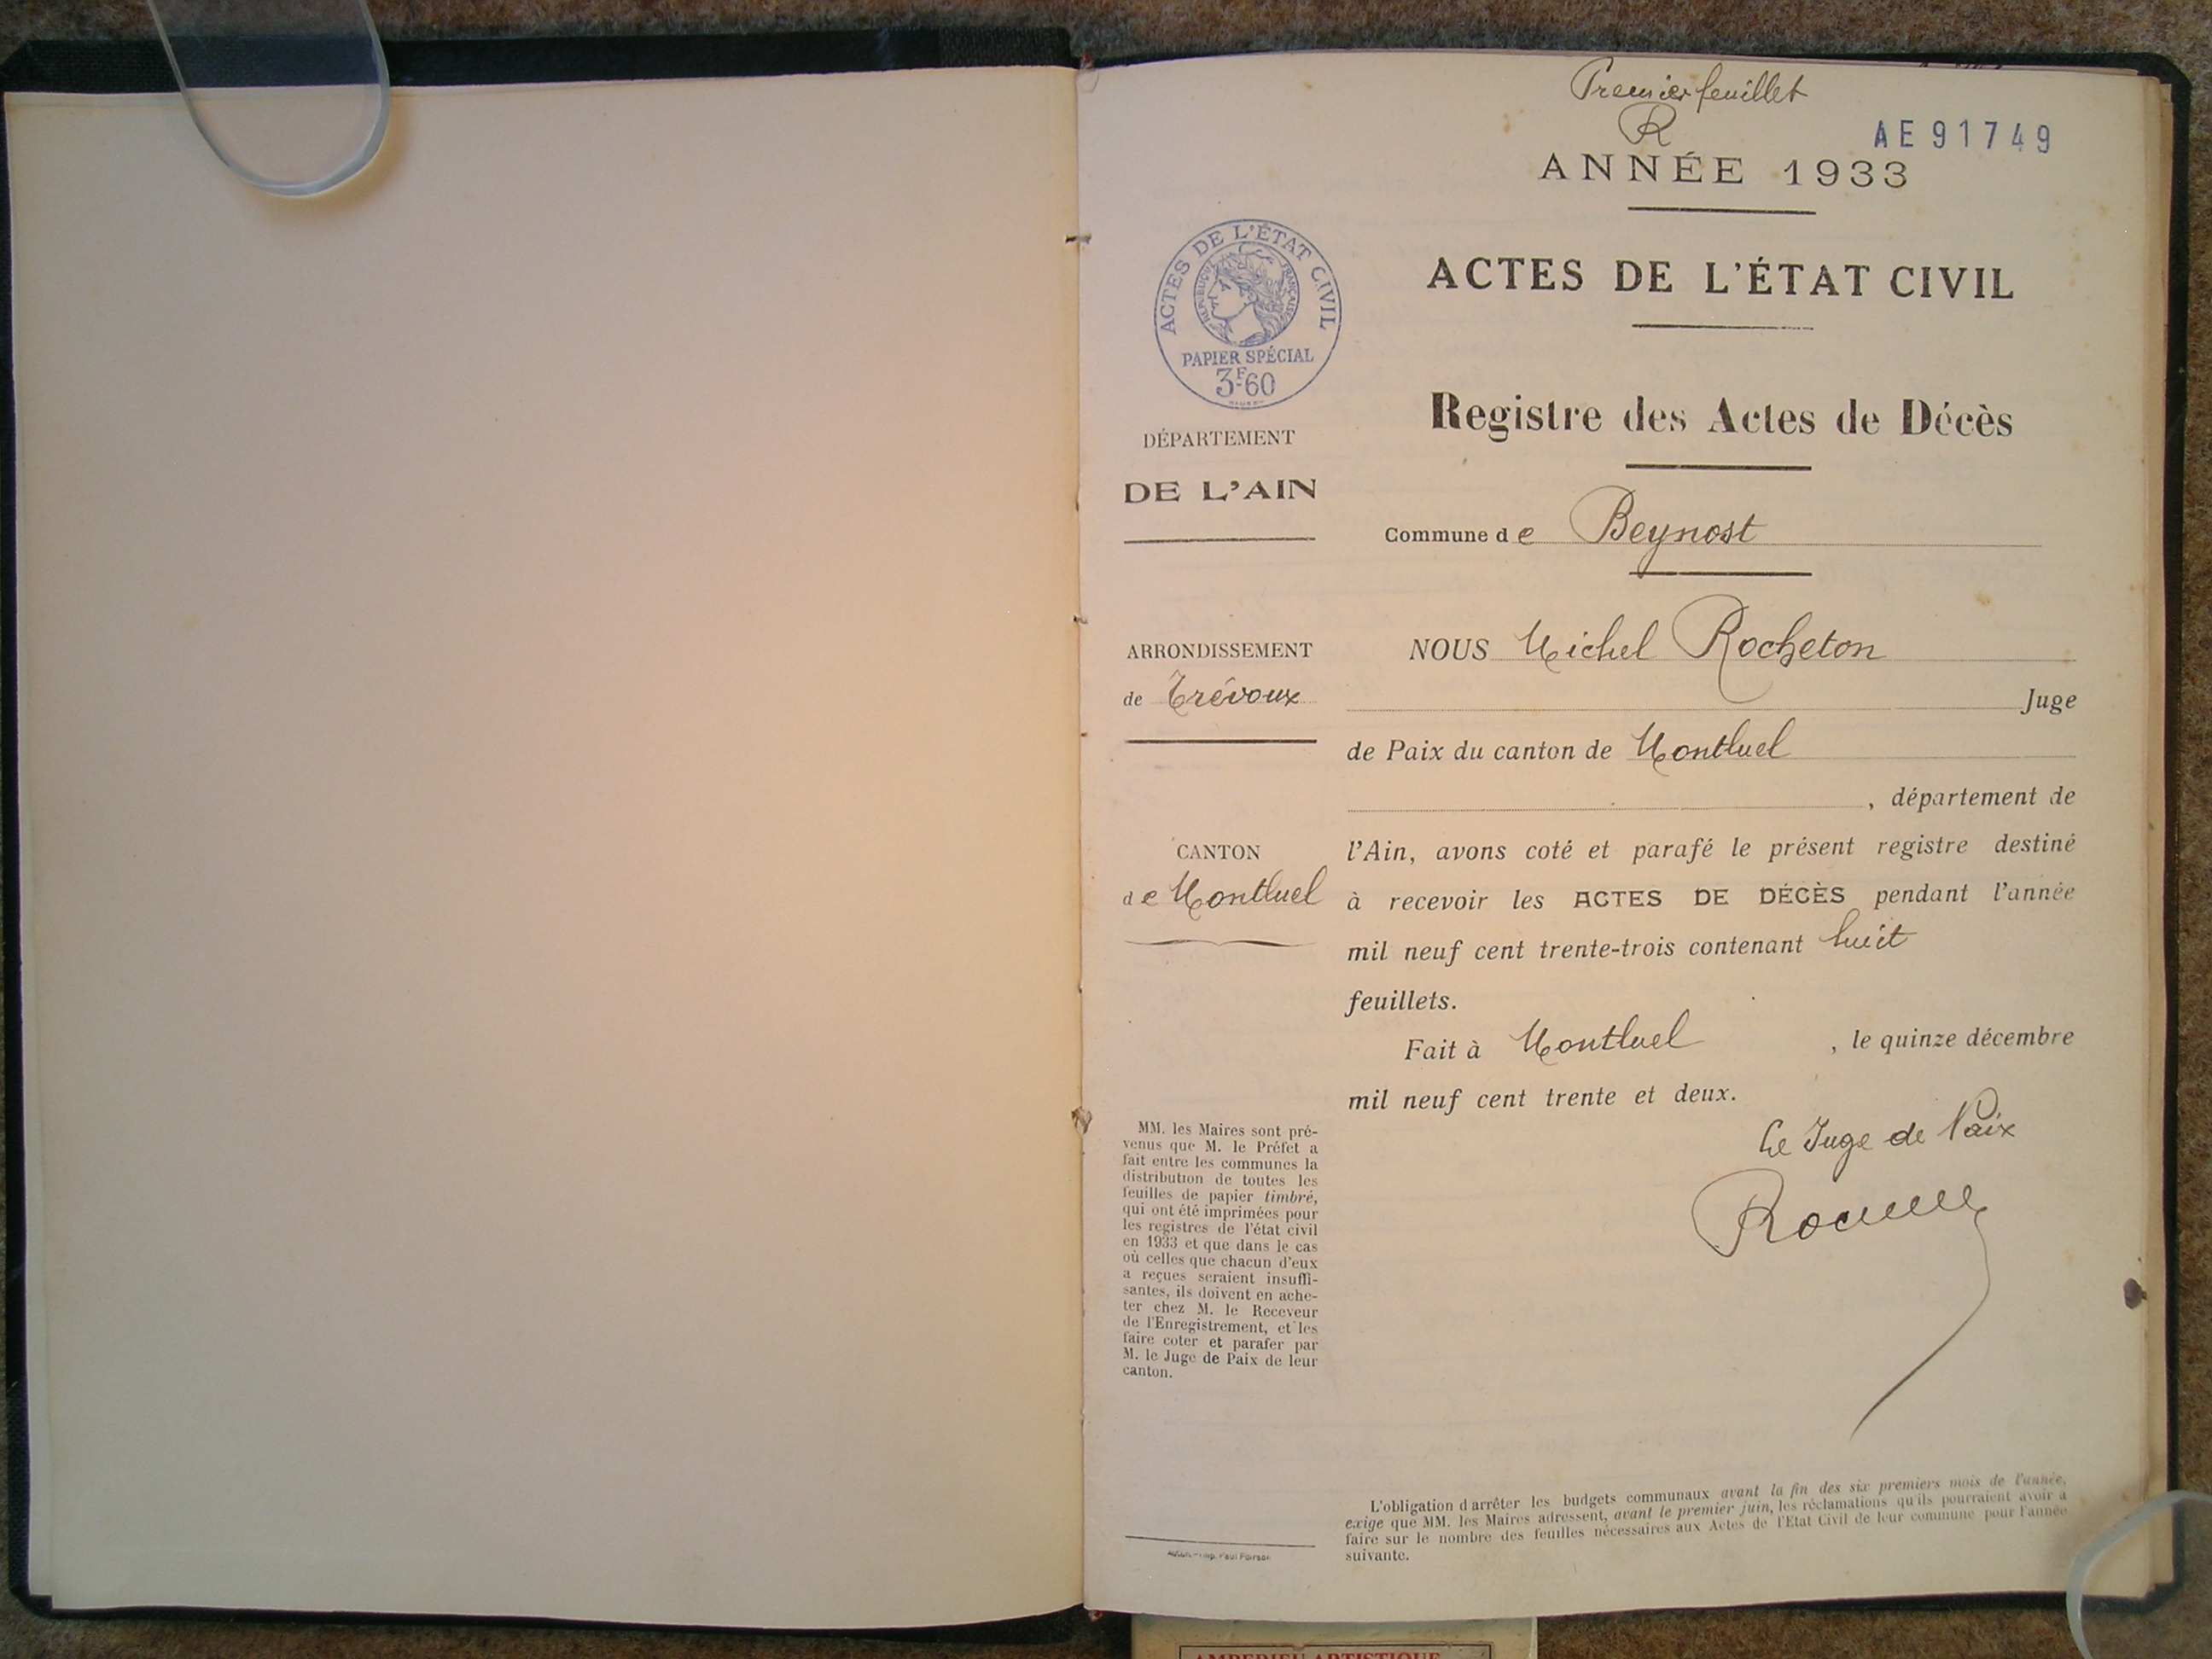 Premier feuillet
R
AE91749
ANNÉE 1933
ACTES DE L'ÉTAT CIVIL
RÉPUBLIQUE FRANÇAISE
PAPIER SPÉCIAL
3F.60
ACTES DE L'ÉTAT CIVIL
Registre des Actes de Décès
DÉPARTEMENT
DE L'AIN
Commune de Beynost
ARRONDISSEMENT
de Trévoux
CANTON
de Montluel
NOUS Michel Rocheton
Juge
de Paix du canton de Montluel
, département de
l'Ain, avons coté et parafé le présent registre destiné
à recevoir les ACTES DE DÉCÈS pendant l'année
mil neuf cent trente-trois contenant huit
feuillets.
Fait à Montluel , le quinze décembre
mil neuf cent trente et deux.
Le Juge de Paix
MM. les Maires sont pré-
venus que M. le Préfet a
fait entre les communes la
distribution de toutes les
feuilles de papier timbré,
qui ont été imprimées pour
les registres de l'état civil
en 1933 et que dans le cas
où celles que chacun d'eux
a reçues seraient insuffi-
santes, ils doivent en ache-
ter chez M. le Receveur
de l'Enregistrement, et les
faire coter et parafer par
M. le Juge de Paix de leur
canton.
L'obligation d'arrêter les budgets communaux avant la fin des six premiers mois de l'année,
exige que MM. les Maires adressent, avant le premier juin, les réclamations qu'ils pourraient avoir à
faire sur le nombre des feuilles nécessaires aux Actes de l'Etat Civil de leur commune pour l'année
suivante.
Imp. Paul
AMBERIEU ARTISTIQUE